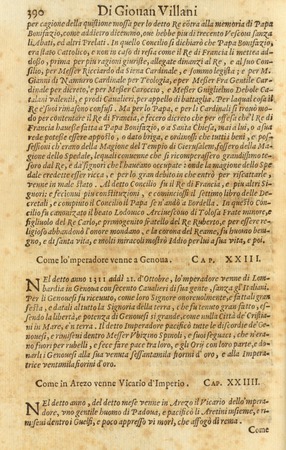 390 Di Giouan Villani
per cagione della quistione mossa per lo detto Re contra alla memoria di Papa
Bonifazio, come addietro dicemmo, oue hebbe piu di trecento Vescoui sanza
li Abati, ed altri Prelati. In quello Concilio si dichiarò che Papa Bonifazio,
era stato Cattolico, e non in caso di resia come il Re di Francia li metteua ad-
dosso, prima per piu ragioni giuriste, allegate dinanzi al Re, e al suo Con-
silio, per Messer Ricciardo da Siena Cardinale, e sommo leggista; e per M.
Gianni di Namurro Cardinale per Teologia, e per Messer Fra Gentile Car-
dinale per dicreto, e per M. Caroccio, e Messer Guglielmo Debole Ca-
talani valenti, e prodi Caualieri, per appello di battaglia. Per laqual cosa il
Re e suoi rimasono confusi. Ma per lo Papa, e per li Cardinali si fermò mo-
do per contentare il Re, e fecero dicreto che per offesa che il Re di
Francia hauesse fatta a Papa Bonifazio, o a Santa Chiesa, mai a lui, o a sua
rede potesse essere apposto, o dato briga, e ordinossi che tutti beni, e pos-
sessioni ch'erano della Magione del Tempio di Gierusalem, fossero della Ma-
gione dello Spedale, lequali conuenne che si ricomperassero grandissimo te-
soro dal Re, e da signori che l'haueano occupate: onde la magione dello Spe-
dale credette esser ricca, e per lo gran debito in che entrò per riscattarle,
venne in male stato. Al detto Concilio fu il Re di Francia, e piu altri Si-
gnori: e feciono piu constituzioni, e cominciossi il settimo libro delle De-
cretali, e compiuto il Concilio il Papa se n'andò a Bordella. In questo Con-
cilio fu canonizato il beato Lodouico Arciuescouo di Tolosa Frate minore, e
figliuolo del Re Carlo, e primogenito fratello del Re Ruberto, e per essere re-
ligioso abbandonò l'onore mondano, e la corona del Reame, fu buono huomo
gno, e di santa vita, e molti miracoli mostrò Iddio per lui a sua vita, e poi.
Come lo'mperadore venne a Genoua. CAP. XXIII.
Nel detto anno 1311 addì 21. d'Ottobre, lo'mperadore venne di Lom-
bardia in Genoua con secento Caualieri di sua gente, sanza gl'Italiani.
Per li Genouesi fu riceuuto, come loro Signore onoreuolmente, e fattali gran
festa, e datali al tutto la Signoria della terra, che fu tenuto gran fatto, es-
sendo la libertà, e potenzia di Genouesi si grande come nulla Città de' Cristia-
ni in Mare, e n terra. Il detto Imperadore pacificò tutte le discordie de Ge-
nouesi, e rimisseui dentro Messer Vbizino Spinoli, e suoi seguaci, che n'era-
no fuori per rubelli, e fece fare pace tra loro, e gli Orij con loro parte, e do-
narli i Genouesi alla sua venuta sessantamila fiorini d'oro, e alla Impera-
trice ventimila fiorini d'oro.
Come in Arezo venne Vicario d'Imperio. CAP. XXIIII.
Nel detto anno, del detto mese venne in Arezo il Vicario dello'mpera-
dore, vno gentile huomo di Padoua, e pacificò li Aretini insieme, e ri-
miseui dentro i Guelfi, e poco appresso vi morì, che affogò di rema.
Come